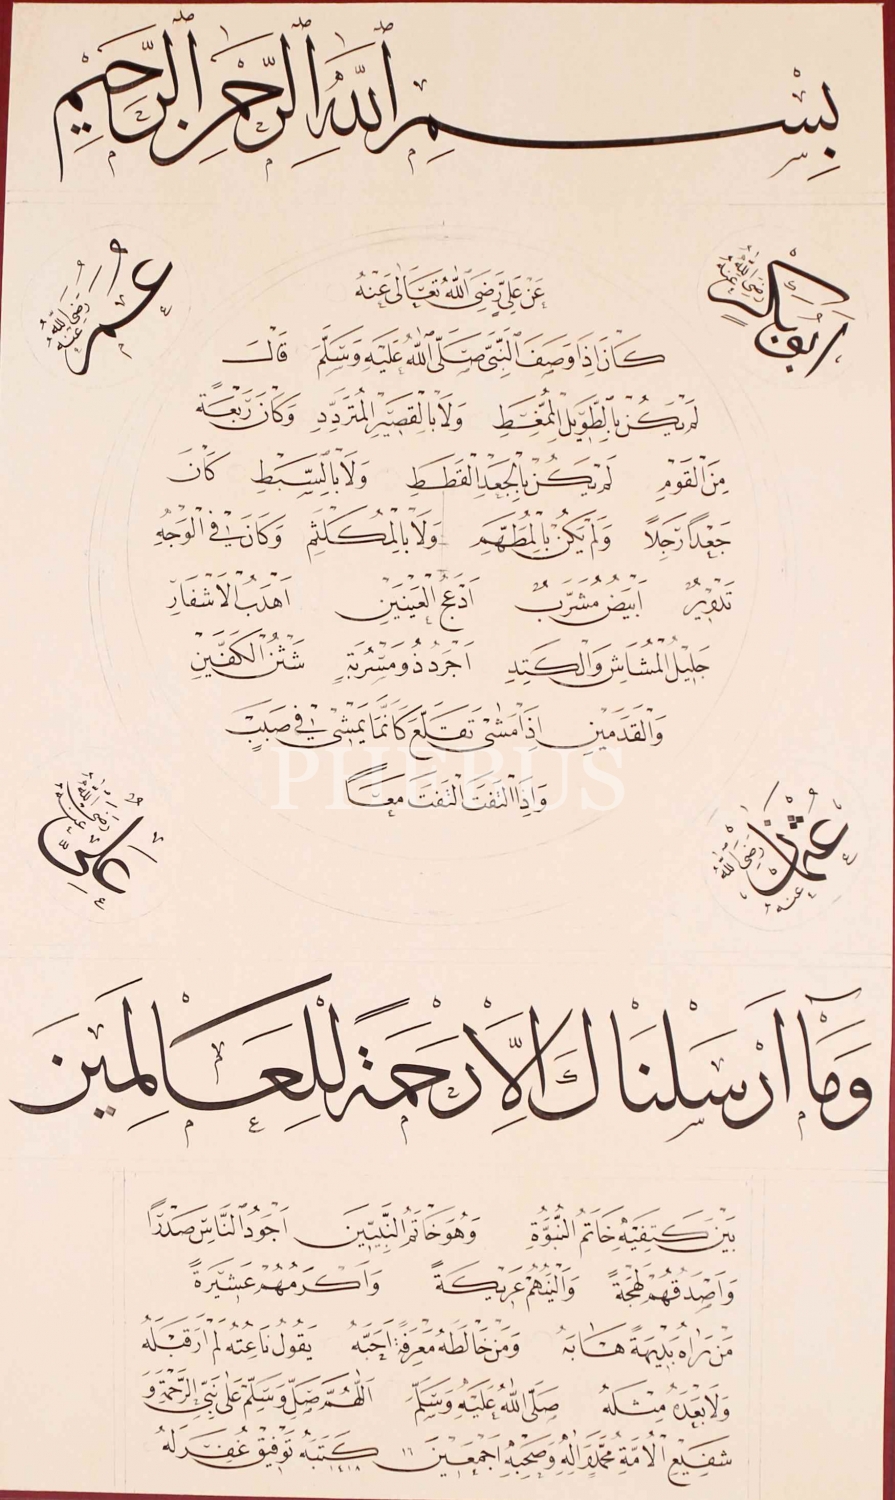 بِسْمِ اللّٰهِ الرَّحْمٰنِ الرَّحِيمِ
اَبُوبَكْر رَضِيَ اللّٰهُ عَنْهُ
عُمَرُ رَضِيَ اللّٰهُ عَنْهُ
عَنْ عَلِيٍّ رَضِيَ اللّٰهُ تَعَالٰى عَنْهُ
كَانَ اِذَا وَصَفَ النَّبِيَّ صَلَّى اللّٰهُ عَلَيْهِ وَسَلَّمَ قَالَ
لَمْ يَكُنْ بِالطَّوِيلِ الْمُمَّغِطِ وَلَا بِالْقَصِيرِ الْمُتَرَدِّدِ وَكَانَ رَبْعَةً
مِنَ الْقَوْمِ لَمْ يَكُنْ بِالْجَعْدِ الْقَطَطِ وَلَا بِالسَّبِطِ كَانَ
جَعْدًا رَجِلًا وَلَمْ يَكُنْ بِالْمُطَهَّمِ وَلَا بِالْمُكَلْثَمِ وَكَانَ فِي الْوَجْهِ
تَدْوِيرٌ اَبْيَضُ مُشْرَبٌ اَدْعَجُ الْعَيْنَيْنِ اَهْدَبُ الْاَشْفَارِ
جَلِيلُ الْمُشَاشِ وَالْكَتِدِ اَجْرَدُ ذُو مَسْرُبَةٍ شَثْنُ الْكَفَّيْنِ
وَالْقَدَمَيْنِ اِذَا مَشٰى تَقَلَّعَ كَاَنَّمَا يَمْشِي فِي صَبَبٍ
وَاِذَا الْتَفَتَ الْتَفَتَ مَعًا
PHEBUS
عُثْمَان رَضِيَ اللّٰهُ عَنْهُ
عَلِيّ رَضِيَ اللّٰهُ عَنْهُ
وَمَا اَرْسَلْنَاكَ اِلَّا رَحْمَةً لِلْعَالَمِينَ
بَيْنَ كَتِفَيْهِ خَاتَمُ النُّبُوَّةِ وَهُوَ خَاتَمُ النَّبِيِّينَ اَجْوَدُ النَّاسِ صَدْرًا
وَاَصْدَقُهُمْ لَهْجَةً وَاَلْيَنُهُمْ عَرِيكَةً وَاَكْرَمُهُمْ عَشِيرَةً
مَنْ رَاٰهُ بَدِيهَةً هَابَهُ وَمَنْ خَالَطَهُ مَعْرِفَةً اَحَبَّهُ يَقُولُ نَاعِتُهُ لَمْ اَرَ قَبْلَهُ
وَلَا بَعْدَهُ مِثْلَهُ صَلَّى اللّٰهُ عَلَيْهِ وَسَلَّمَ اَللّٰهُمَّ صَلِّ وَسَلِّمْ عَلٰى نَبِيِّ الرَّحْمَةِ وَ
شَفِيعِ الْاُمَّةِ مُحَمَّدٍ وَاٰلِهِ وَصَحْبِهِ اَجْمَعِينَ كَتَبَهُ تَوْفِيقْ غُفِرَ لَهُ ١٤١٨